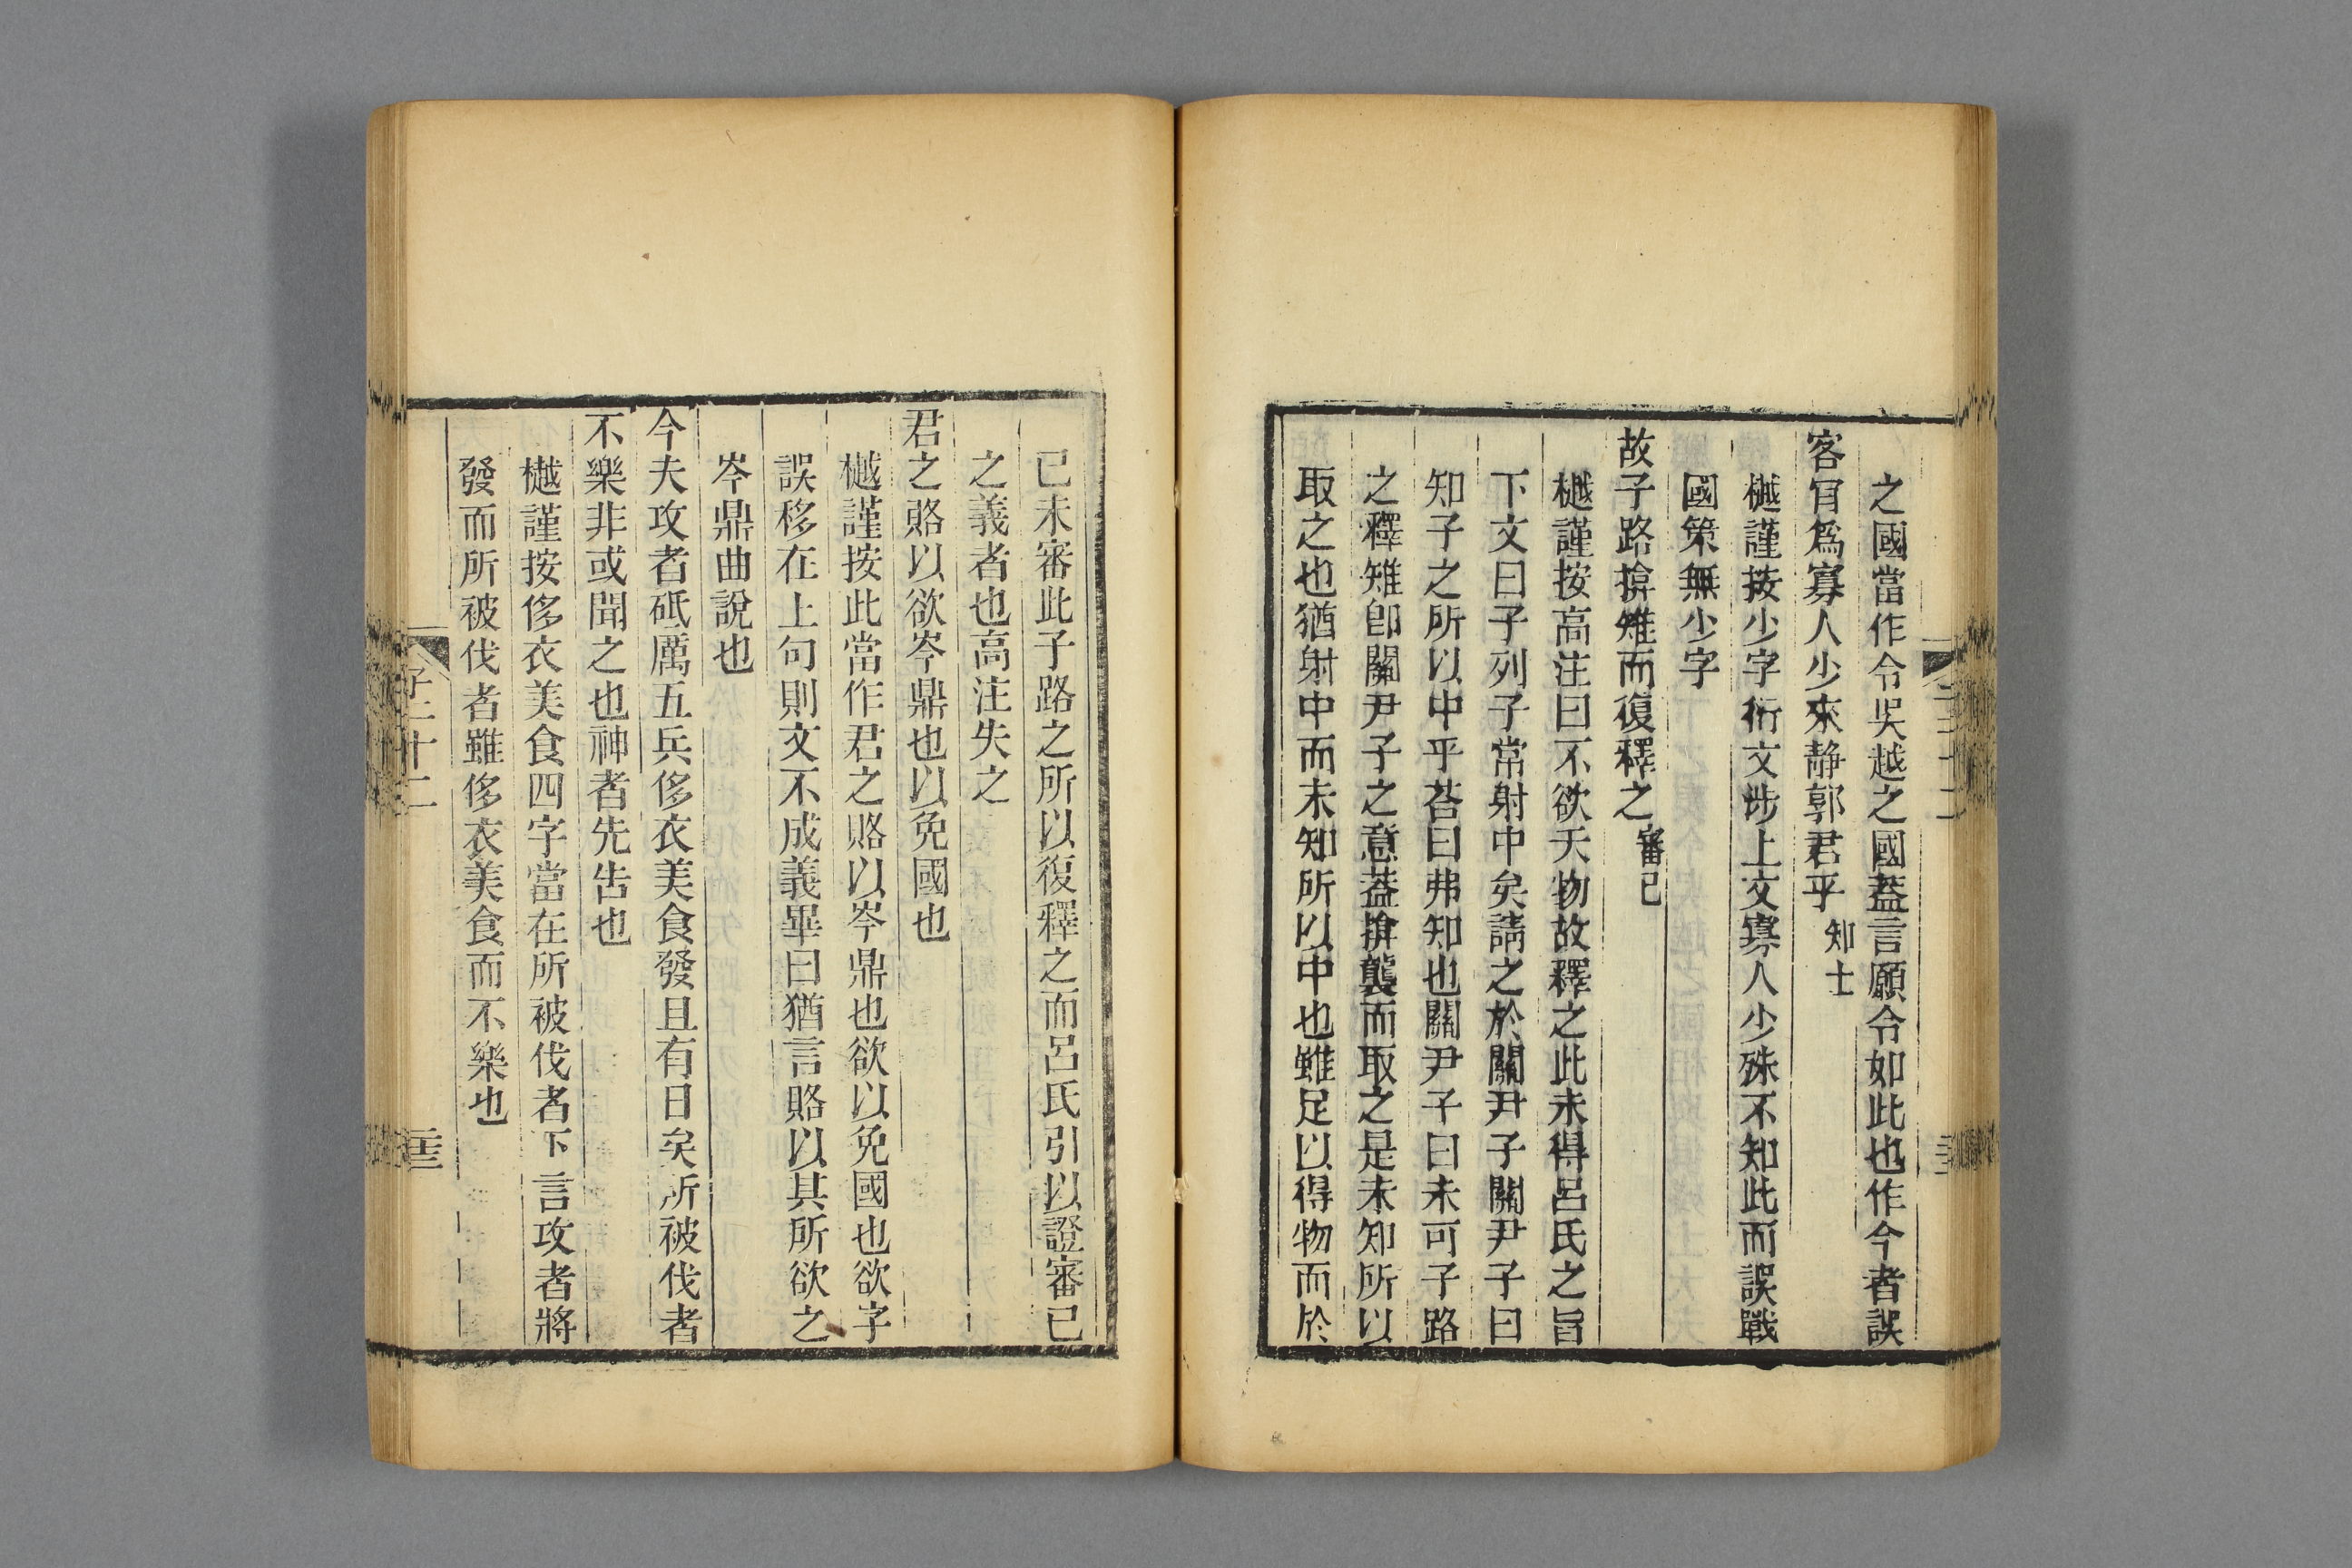 之國當作令吳越之國葢言願令如此也作今者誤
客肎爲寡人少來静郭君乎 知士
樾謹按少字衍文涉上文寡人少殊不知此而誤戰
國策無少字
故子路揜雉而復釋之 審己
樾謹按高注曰不欲夭物故釋之此未得呂氏之旨
下文曰子列子常射中矣請之於關尹子關尹子曰
知子之所以中乎荅曰弗知也關尹子曰未可子路
之釋雉卽關尹子之意葢揜襲而取之是未知所以
取之也猶射中而未知所以中也雖足以得物而於
已未審此子路之所以復釋之而呂氏引以證審已
之義者也高注失之
君之賂以欲岑鼎也以免國也
樾謹按此當作君之賂以岑鼎也欲以免國也欲字
誤移在上句則文不成義畢曰猶言賂以其所欲之
岑鼎曲說也
今夫攻者砥厲五兵侈衣美食發且有日矣所被伐者
不樂非或聞之也神者先告也
樾謹按侈衣美食四字當在所被伐者下言攻者將
發而所被伐者雖侈衣美食而不樂也
子二十二